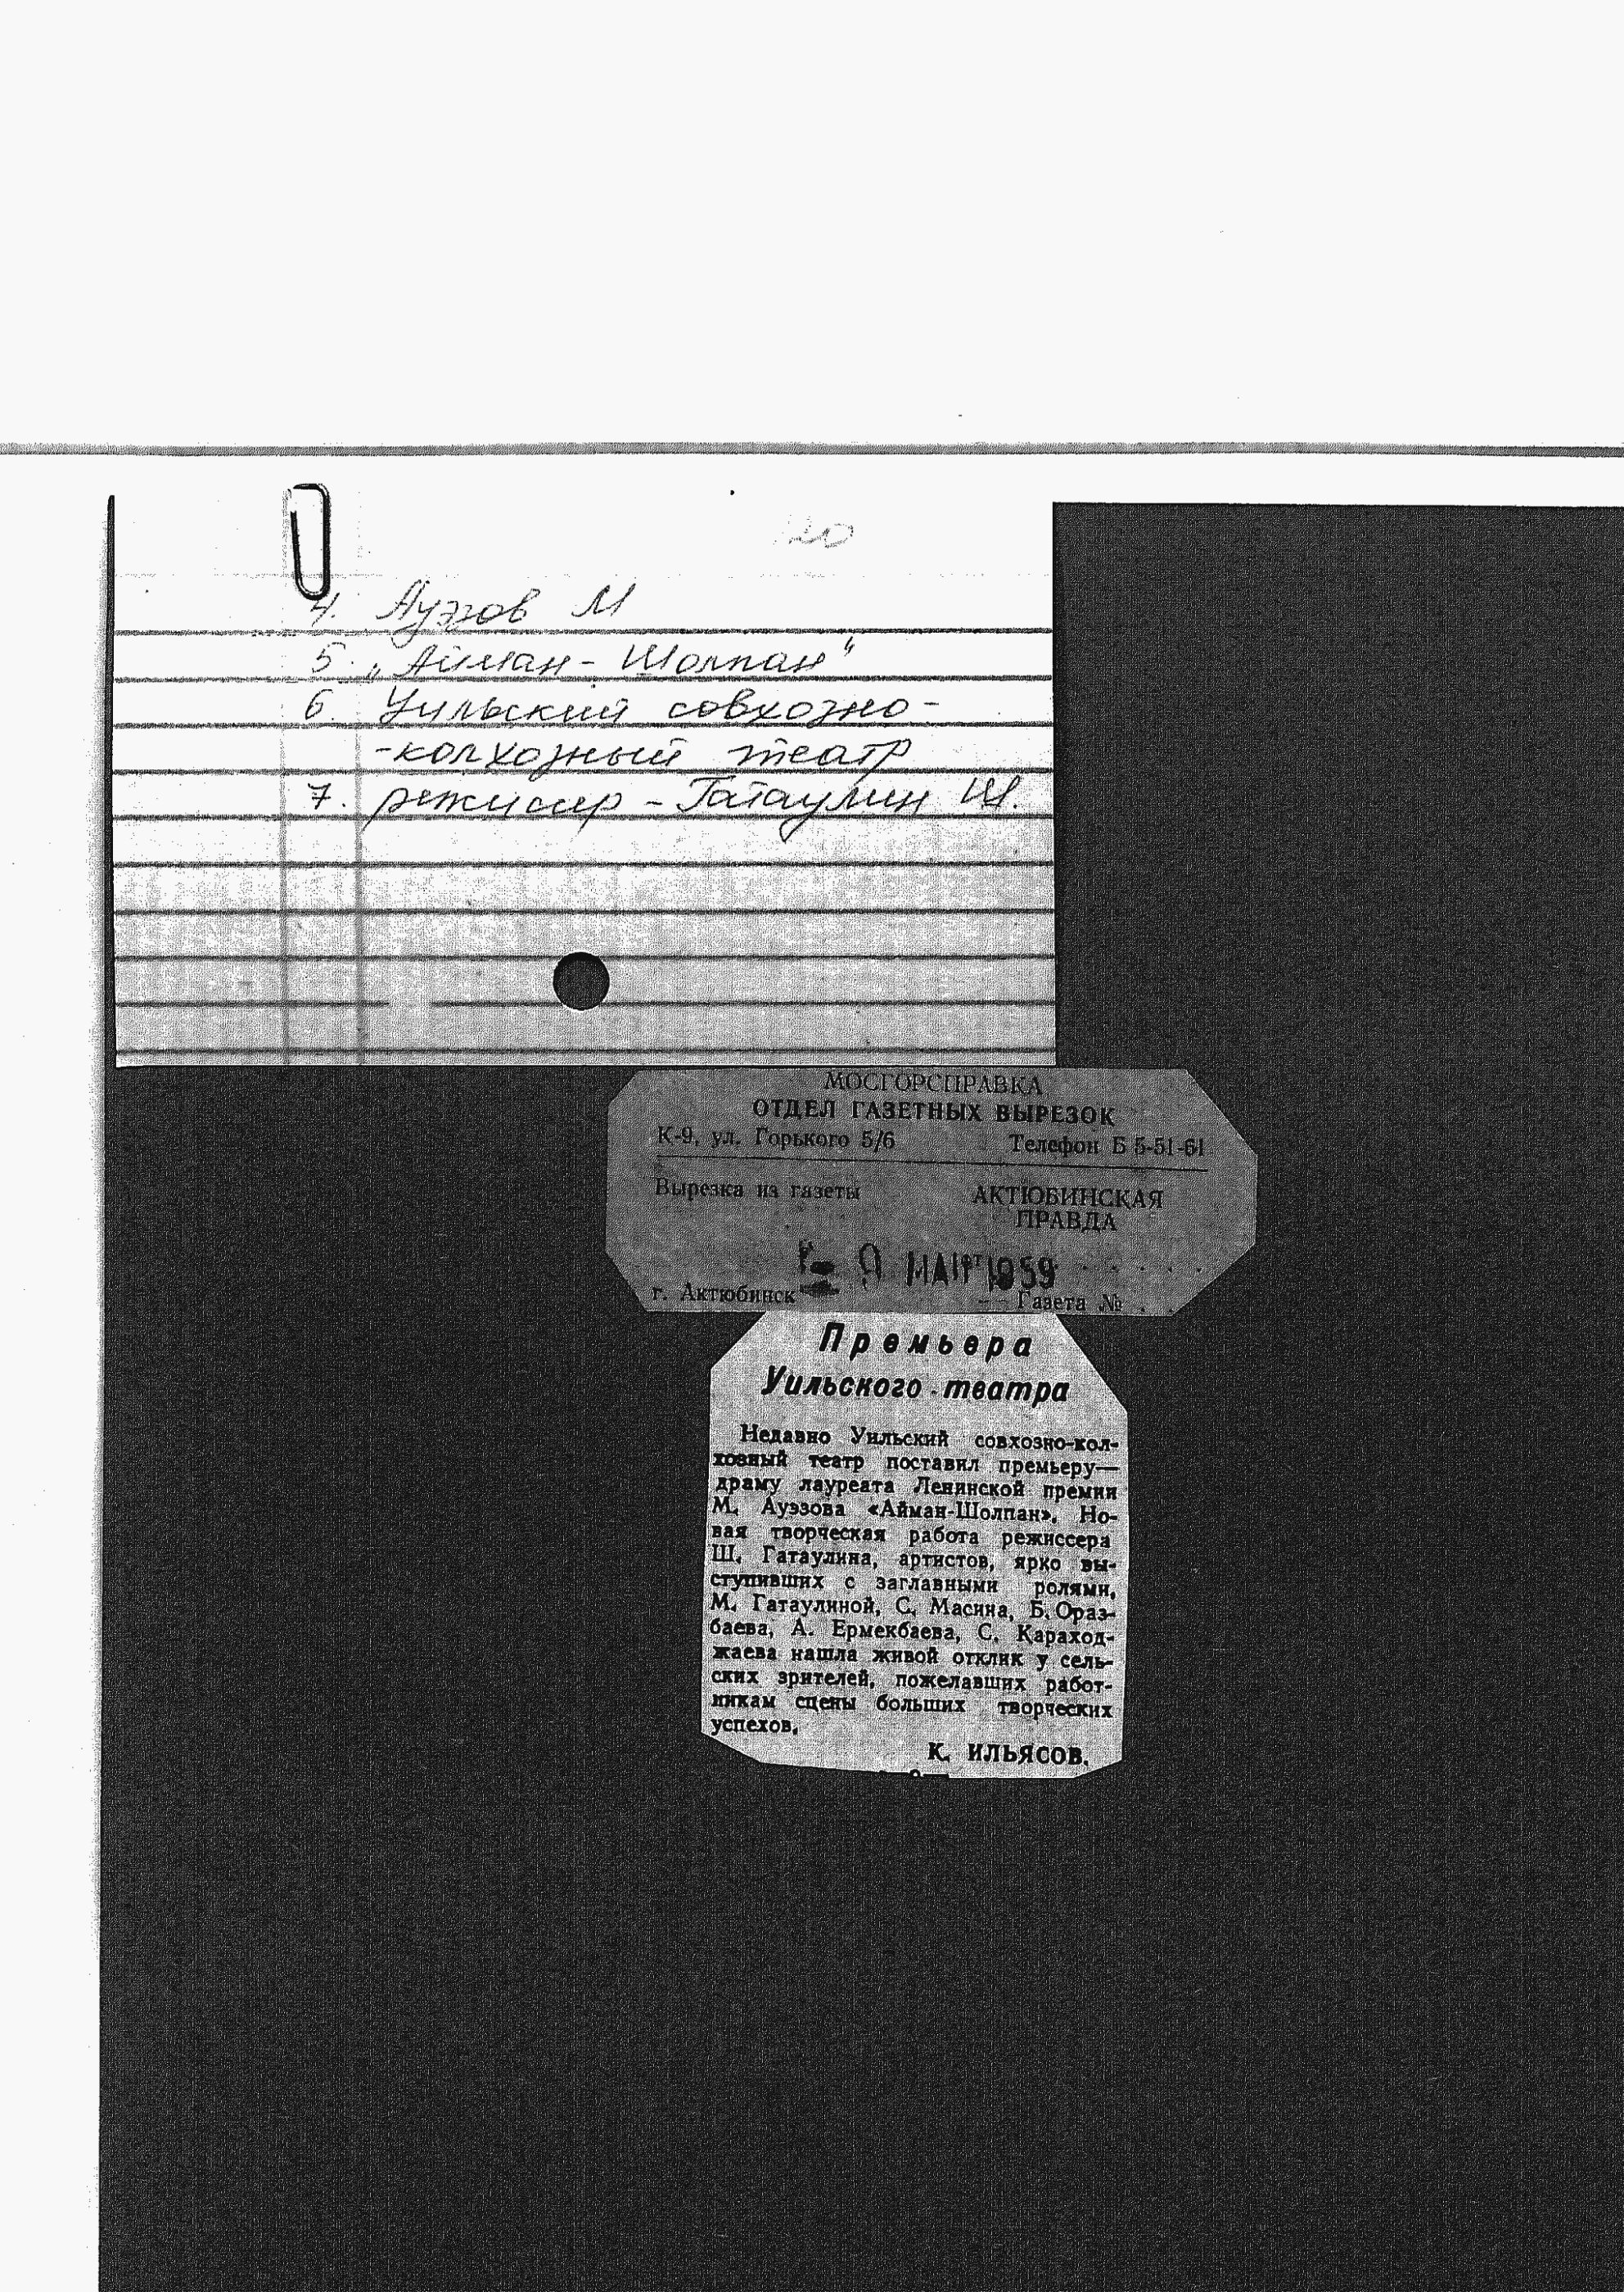 20
4. Ауэзов М
5. „Айман-Шолпан"
6. Уильский совхозно-
-колхозный театр
7. режиссер - Гатаулин Ш.
МОСГОРСПРАВКА
ОТДЕЛ ГАЗЕТНЫХ ВЫРЕЗОК
К-9, ул. Горького 5/6 Телефон Б 5-51-61
Вырезка из газеты АКТЮБИНСКАЯ
ПРАВДА
9 МАРТ 1959
г. Актюбинск Газета №
Премьера
Уильского театра
Недавно Уильский совхозно-кол-
хозный театр поставил премьеру—
драму лауреата Ленинской премии
М. Ауэзова «Айман-Шолпан». Но-
вая творческая работа режиссера
Ш. Гатаулина, артистов, ярко вы-
ступивших с заглавными ролями,
М. Гатаулиной, С. Масина, Б. Ораз-
баева, А. Ермекбаева, С. Караход-
жаева нашла живой отклик у сель-
ских зрителей, пожелавших работ-
никам сцены больших творческих
успехов.
К. ИЛЬЯСОВ.